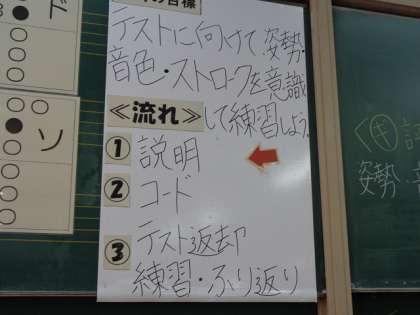 の目標
テストに向けて、姿勢・
音色・ストロークを意識
≪流れ≫して練習しよう。
① 説明
② コード
③ テスト返却
練習・ふり返り
ド
ソ
姿勢・